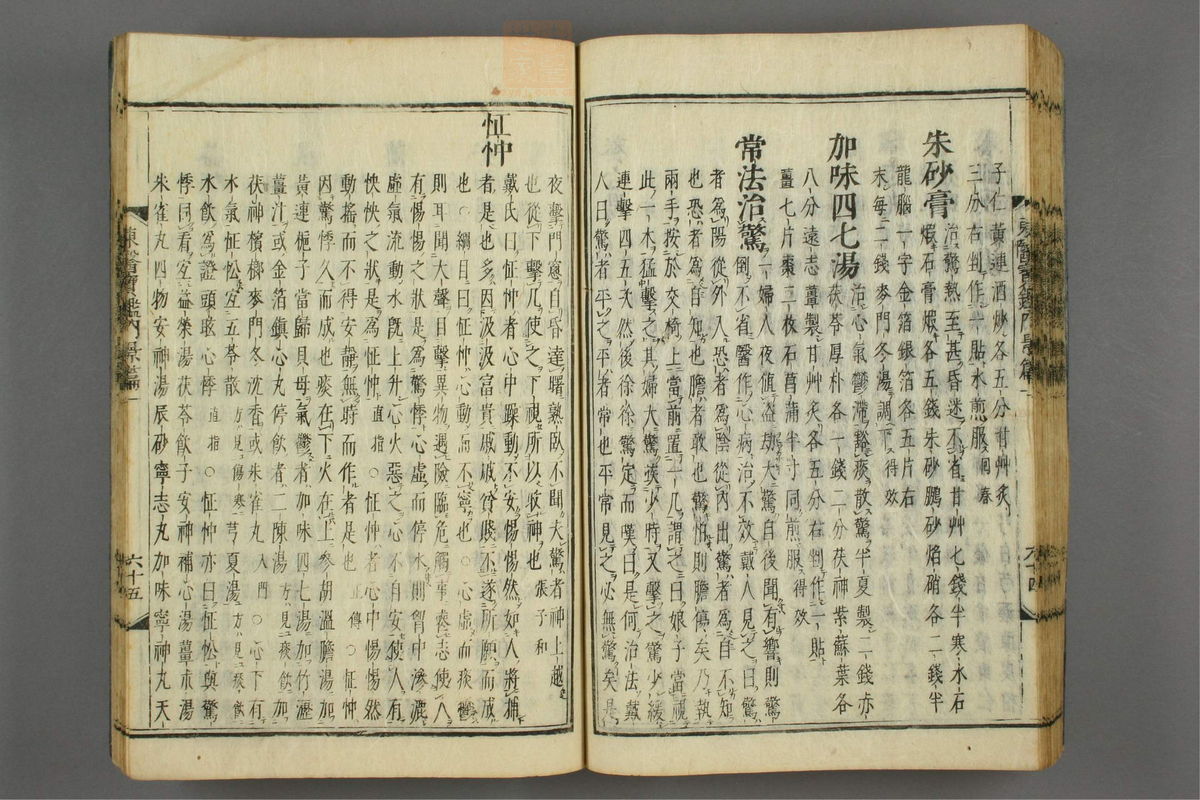 子仁黃連酒炒各五分甘艸炙
三分右剉作一貼水煎服回春
朱砂膏治驚熱至甚昏迷不省甘艸七錢半寒水石
煆石膏煆各五錢朱砂鵬砂焰硝各二錢半
龍腦一字金箔銀箔各五片右
末每二錢麥門冬湯調下得效
加味四七湯治心氣鬱滯豁痰散驚半夏製二錢赤
茯苓厚朴各一錢二分茯神紫蘇葉各
八分遠志薑製甘艸炙各五分右剉作一貼
薑七片棗二枚石菖蒲半寸同煎服得效
常法治驚一婦人夜値盜劫大驚自後聞有響則驚
倒不省醫作心病治不效戴人見之曰驚
者爲陽從外入恐者爲陰從內出驚者爲自不知
也恐者自知也膽者敢也驚怕則膽傷矣乃執
兩手按於交椅上當前置一几謂之曰娘子當視
此一木猛擊之其婦大驚挨少時又擊之驚少緩
連擊四五次然後徐徐驚定而嘆曰是何治法戴
人曰驚者平之平者常也平常見之必無驚矣是
東醫寶鑑內景篇一
六十四
夜擊門窓自昏達曙熟臥不聞夫驚者神上越
也從下擊几使之下視所以收神也張子和
怔忡戴氏曰怔忡者心中躁動不安惕惕然如人將捕
者是也多因汲汲富貴戚戚貧賤不遂所願而成
也○綱目曰怔忡心動而不寧也○心虛而痰鬱
則耳聞大聲目擊異物遇險臨危觸事喪志使人
有惕惕之狀是爲驚悸心虛而停水則胷中滲漉
虛氣流動水旣上升心火惡之心不自安使人有
怏怏之狀是爲怔忡直指○怔忡者心中惕惕然
動搖而不得安靜無時而作者是也正傳○怔忡
因驚悸久而成也痰在下火在上參胡溫膽湯加
黃連梔子當歸貝母氣鬱者加味四七湯加竹瀝
薑汁或金箔鎭心丸停飮者二陳湯方見痰飮加
茯神檳榔麥門冬沈香或朱雀丸入門○心下有
水氣怔忪宜五苓散方見傷寒芎夏湯方見痰飮
水飮爲證頭眩心悸直指○怔忡亦曰怔忪與驚
悸同看宜益榮湯茯苓飮子安神補心湯薑朮湯
朱雀丸四物安神湯辰砂寧志丸加味寧神丸天
東醫寶鑑內景篇一
六十五